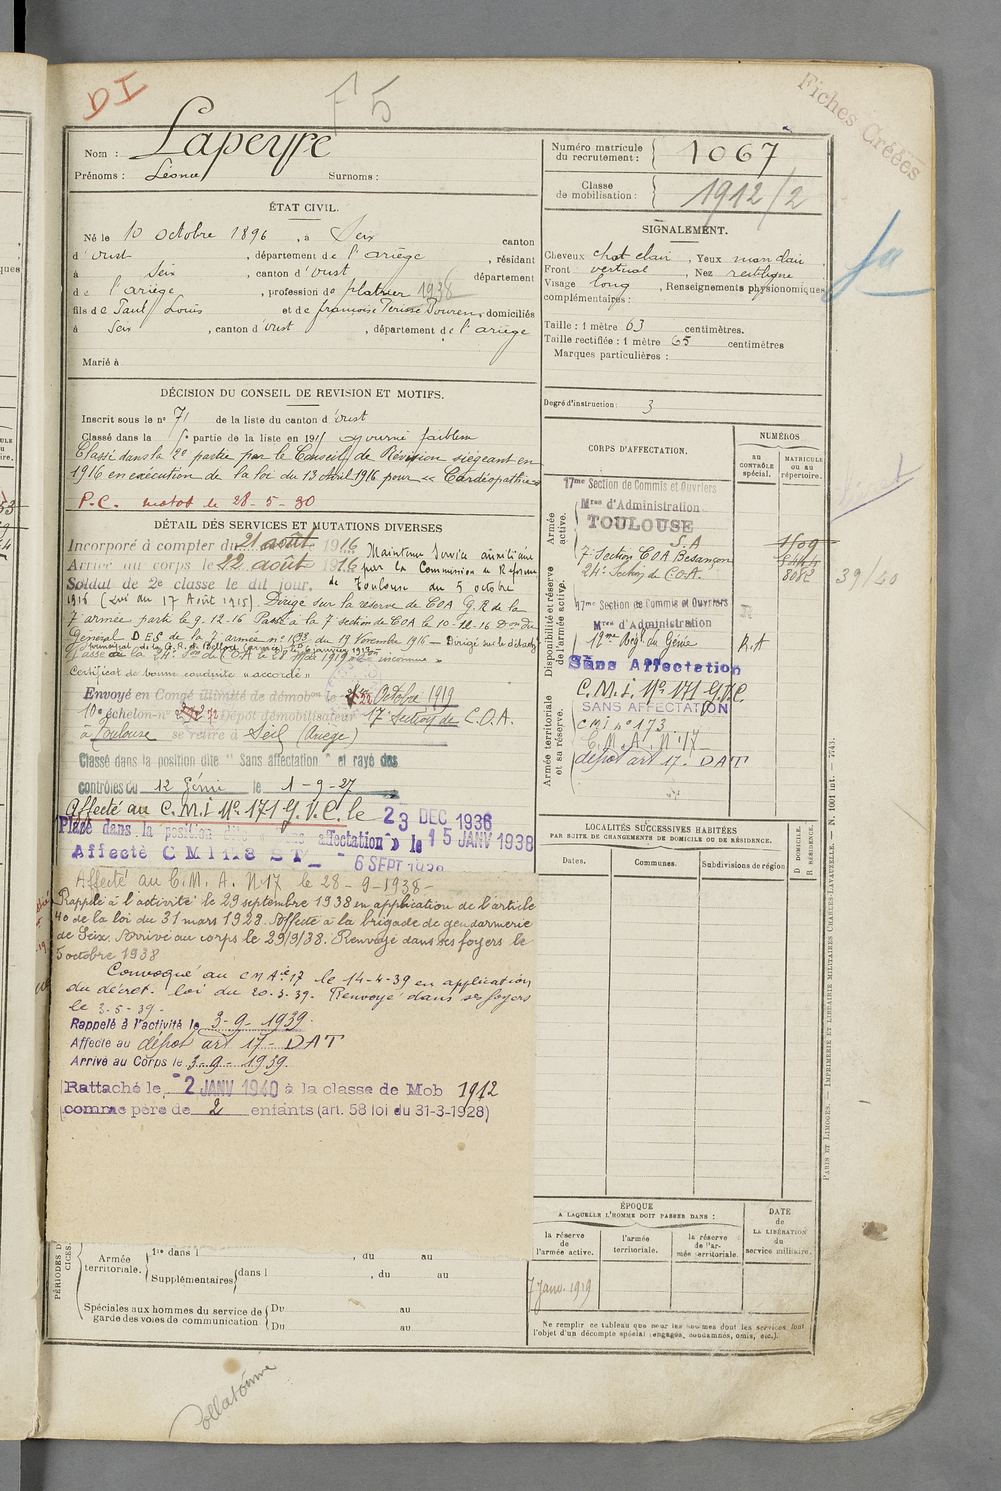 DI
F 5
Fiches Créées
Nom : Lapeyre
Prénoms : Léonce Surnoms :
Numéro matricule du recrutement : 1067
Classe de mobilisation : 1912/2
ÉTAT CIVIL.
Né le 10 octobre 1896, à Seix canton
d'oust, département de l'ariège, résidant
à Seix, canton d'oust département
de l'ariège, profession de platrier 1938
fils de Paul Louis et de françoise Périsse Douren, domiciliés
à Seix, canton d'oust, département de l'ariège
Marié à
SIGNALEMENT.
Cheveux chat clair, Yeux mar clair
Front vertical, Nez rectiligne
Visage long, Renseignements physionomiques
complémentaires :
Taille : 1 mètre 63 centimètres.
Taille rectifiée : 1 mètre 65 centimètres
Marques particulières :
Degré d'instruction : 3
DÉCISION DU CONSEIL DE REVISION ET MOTIFS.
Inscrit sous le n° 71 de la liste du canton d'oust
Classé dans la 5e partie de la liste en 1915 ajourné faiblesse
Classé dans la 2e partie par le Conseil de Révision siégeant en
1916 en exécution de la loi du 13 Avril 1916 pour « Cardiopathie »
P.C. motos le 28-5-30
DÉTAIL DES SERVICES ET MUTATIONS DIVERSES
Incorporé à compter du 21 août 1916
Arrivé au corps le 22 août 1916
Soldat de 2e classe le dit jour.
Maintenu Service auxiliaire
par la Commission de Réforme
de Toulouse du 5 octobre
1916 (Loi du 17 Août 1915). Dirigé sur la réserve de COA G.R de la
7e armée parti le 9.12.16 Passé à la 7e section de COA le 10-12-16 Don du
Général D E S de la 7e armée n° 1033 du 19 Novembre 1916 — Dirigé sur le détacht
Passé à la 24e Son de COA le 21 Mai 1919
Certificat de bonne conduite "accordé"
Envoyé en Congé illimité de démobon le Octobre 1919
10e échelon n° Dépôt démobilisateur 17e Section de C.O.A.
à Toulouse se retire à Seix (Ariège)
Classé dans la position dite "Sans affectation" et rayé des
contrôles du 12 Génie le 1-9-27
Affecté au C.M.I N° 171 G.V.C. le 23 DEC 1936
Placé dans la position dite « sans affectation » le 15 JANV 1938
Affecté CMI 173 6 SEPT 1938
Affecté au C.M.A. N°17 le 28-9-1938-
Rappelé à l'activité le 29 septembre 1938 en application de l'article
40 de la loi du 31 mars 1928. Affecté à la brigade de gendarmerie
de Seix. Arrivé au corps le 29/9/38. Renvoyé dans ses foyers le
5 octobre 1938
Convoqué au CMA 17 le 14-4-39 en application
du décret-loi du 20-3-39. Renvoyé dans ses foyers
le 3-5-39-
Rappelé à l'activité le 3-9-1939.
Affecté au dépôt art 17- DAT
Arrivé au Corps le 3-9-1939.
Rattaché le 2 JANV 1940 à la classe de Mob 1912
comme père de 2 enfants (art. 58 loi du 31-3-1928)
CORPS D'AFFECTATION.
NUMÉROS
AU CONTRÔLE spécial.
MATRICULE ou au répertoire.
Armée active.
17me Section de Commis et Ouvriers
Mres d'Administration
TOULOUSE
S.A 1109
7e Section COA Besançon
24e Section de C.O.A. 8082
39/40
Disponibilité et réserve de l'armée active.
17me Section de Commis et Ouvriers
Mres d'Administration
12me Régt du Génie R.A
Sans Affectation
C.M.I. N° 171 G.V.C
SANS AFFECTATION
Armée territoriale et sa réserve.
CMI n° 173
C.M.A. N° 17
dépôt art 17- DAT
LOCALITÉS SUCCESSIVES HABITÉES
PAR SUITE DE CHANGEMENTS DE DOMICILE OU DE RÉSIDENCE.
Dates.
Communes.
Subdivisions de région
D. DOMICILE. R. RÉSIDENCE.
ÉPOQUE
A LAQUELLE L'HOMME DOIT PASSER DANS :
la réserve de l'armée active.
l'armée territoriale.
la réserve de l'armée territoriale.
DATE de LA LIBÉRATION du service militaire.
7 Janv. 1919
Ne remplir ce tableau que pour les hommes dont les services font
l'objet d'un décompte spécial (engagés, condamnés, omis, etc.).
Armée territoriale.
1re dans l , du au
Supplémentaires dans l , du au
Spéciales aux hommes du service de
garde des voies de communication
Du au
Du au
PARIS ET LIMOGES. — IMPRIMERIE ET LIBRAIRIE MILITAIRES CHARLES-LAVAUZELLE. — N. 1001 int. — 7745.
Collationné